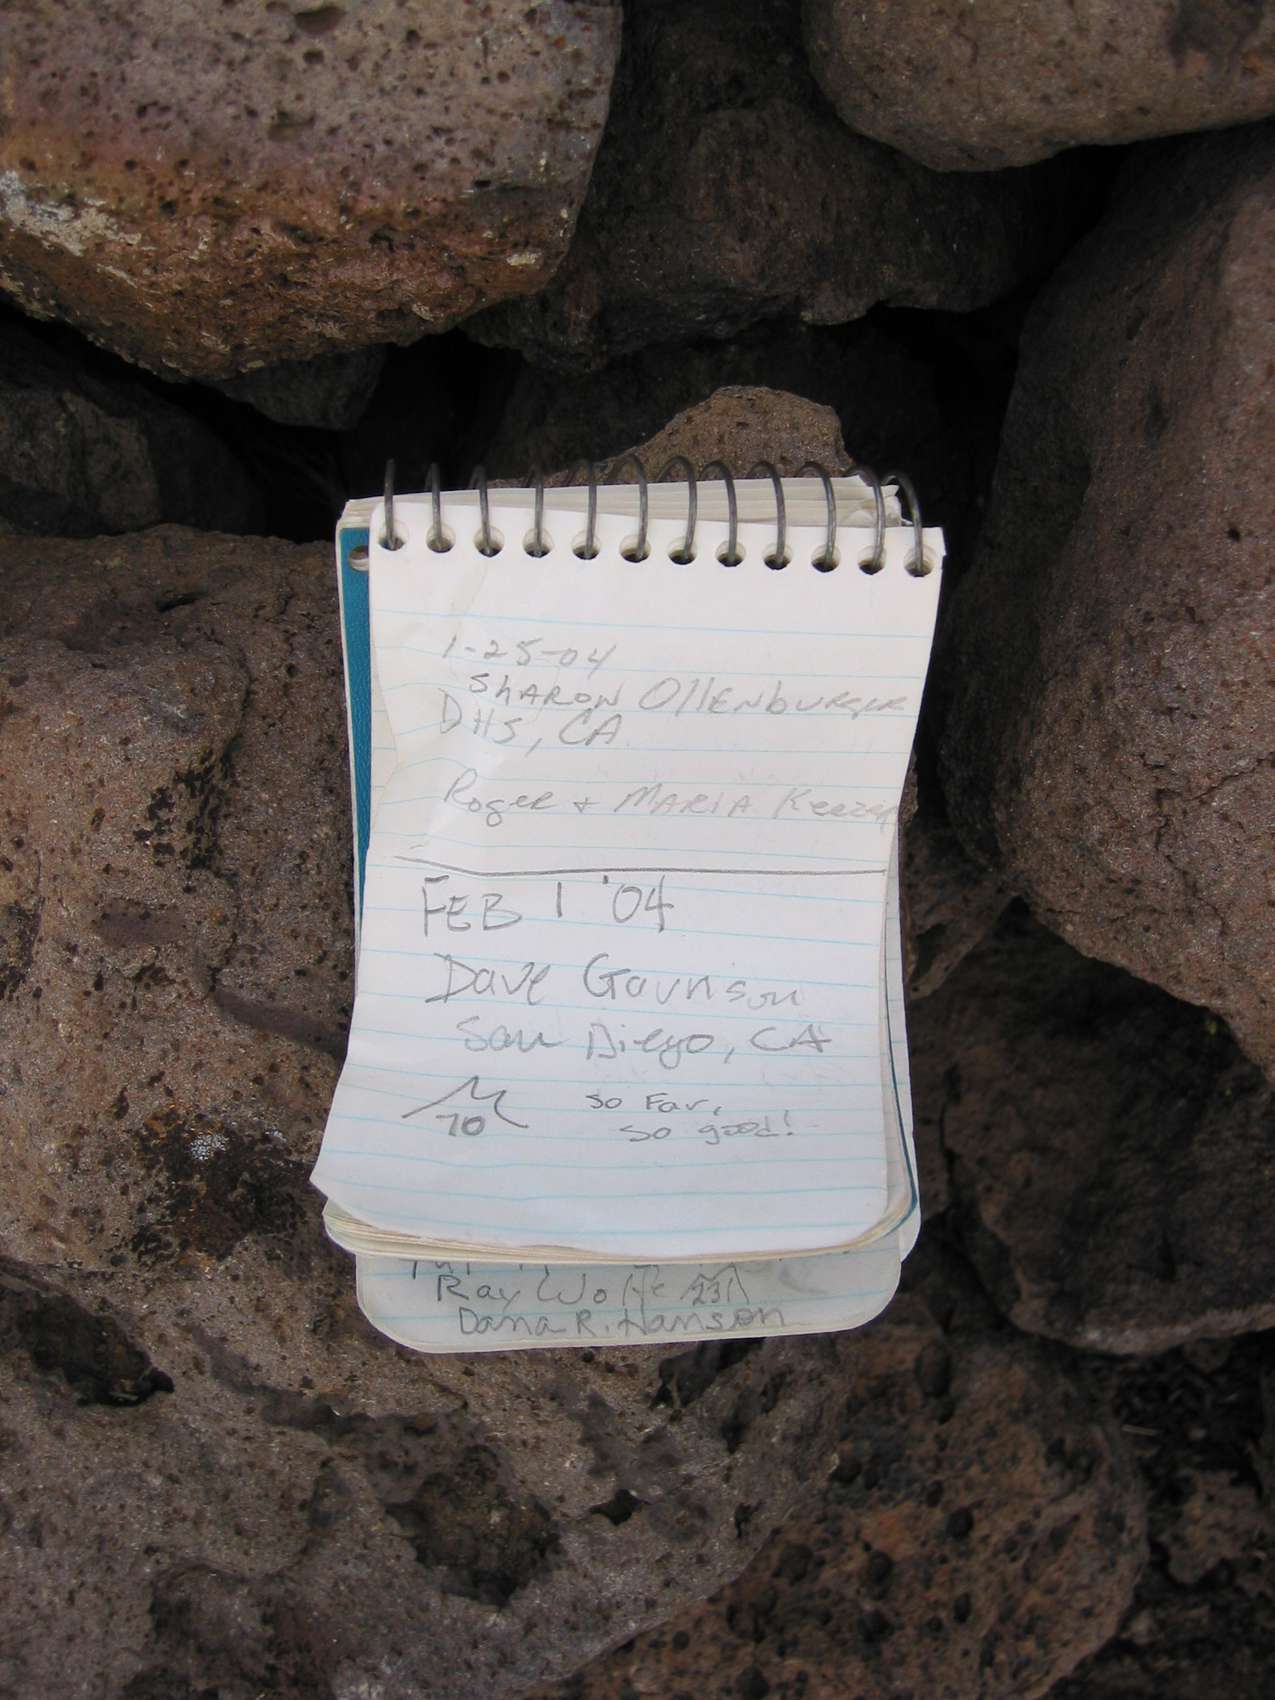 1-25-04
SHARON OllENBURGER
DHS, CA
Roger + MARIA
FEB 1 '04
Dave
San Diego, CA
70 So Far,
so good!
Ray Wolfe 231
Dana R. Hanson